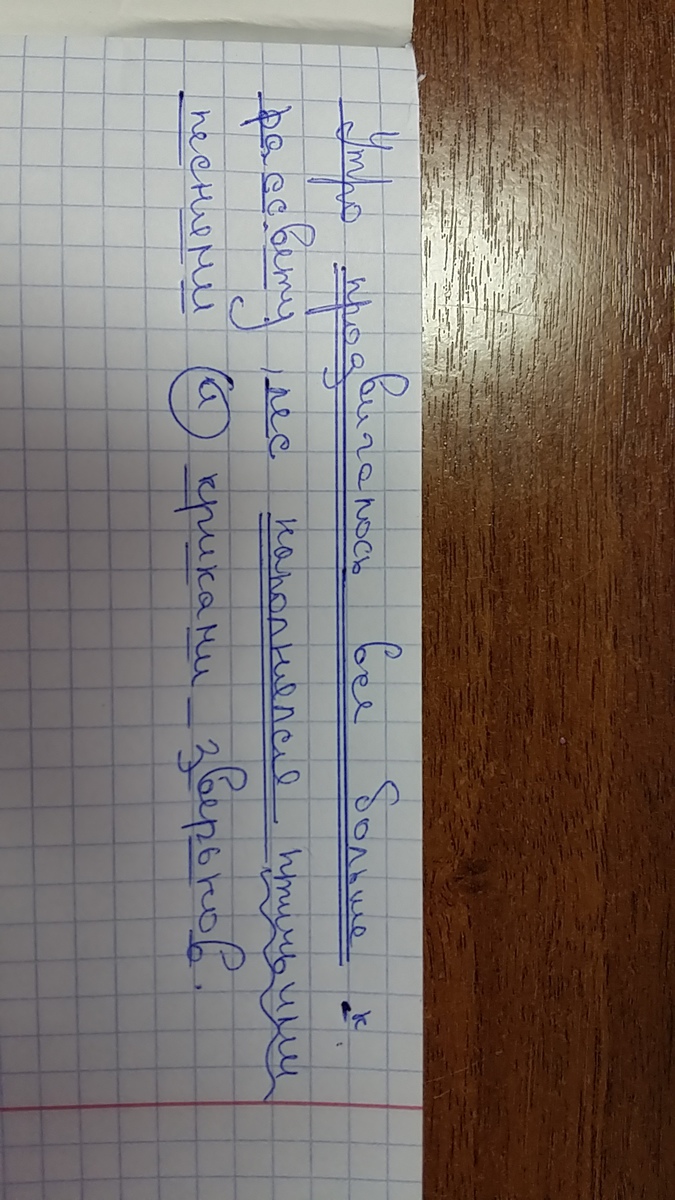 Утро продвигалось всё больше к
рассвету, лес наполнялся птичьими
песнями и криками зверьков.